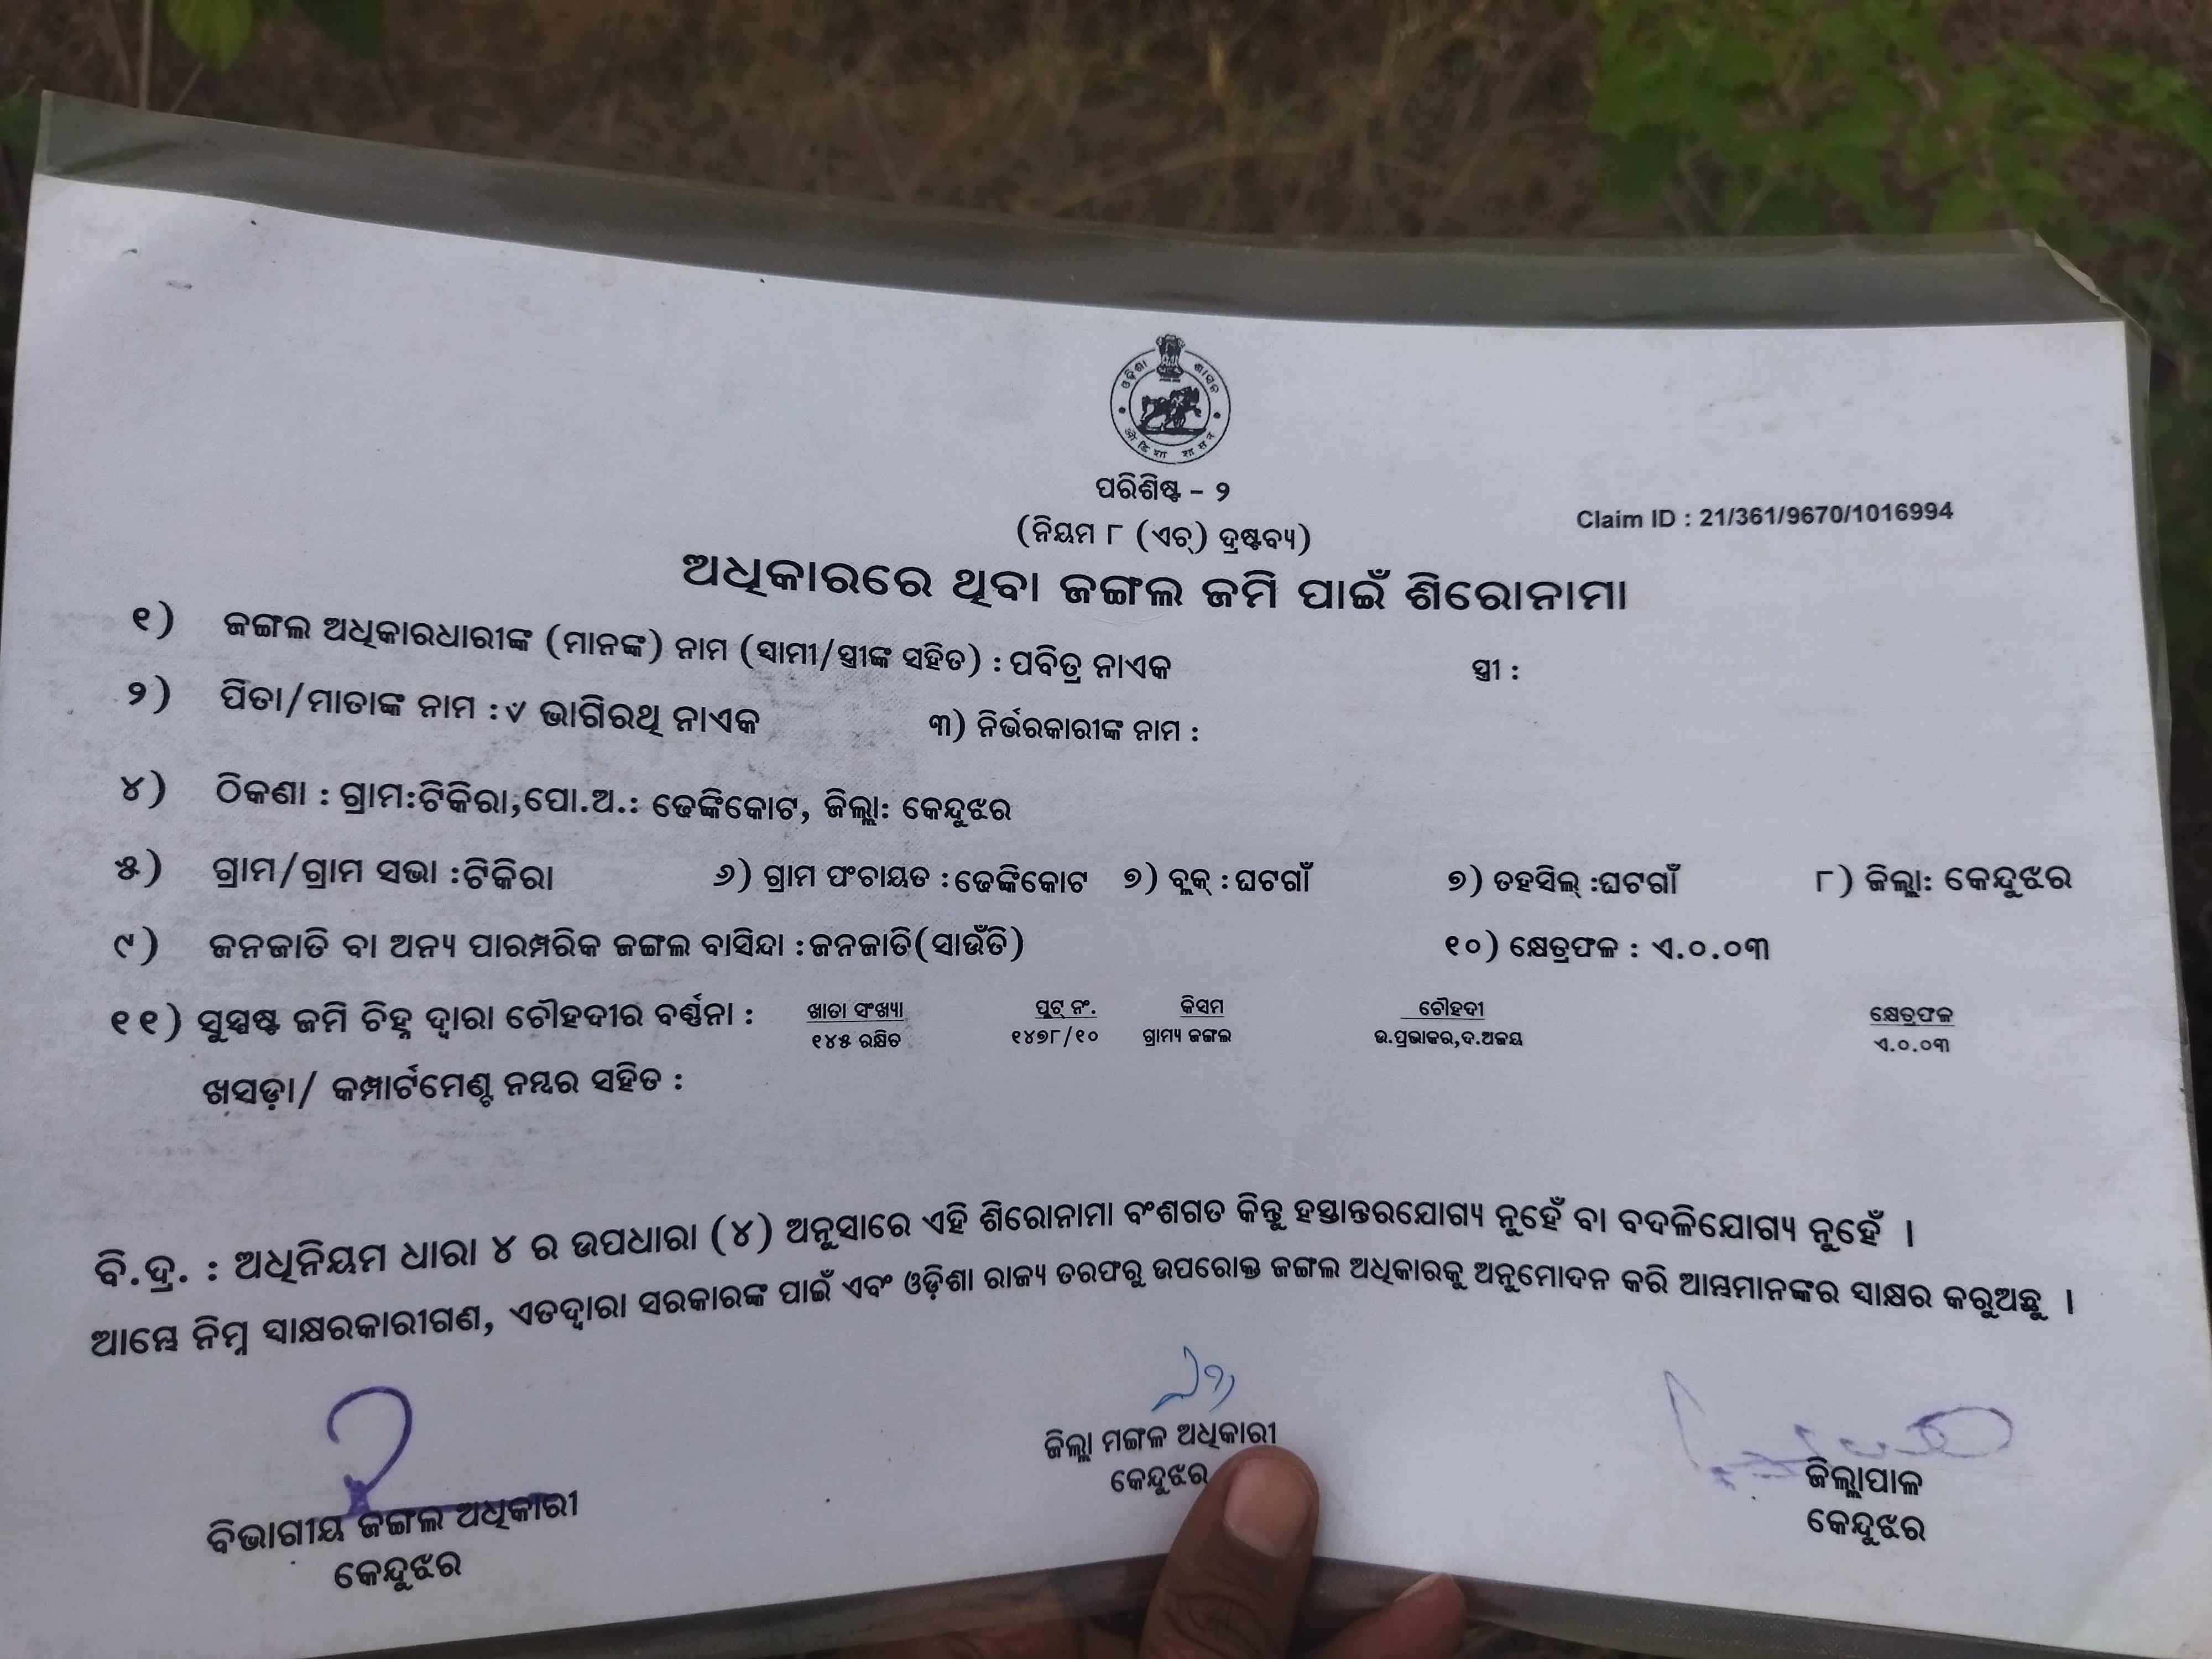 ଓଡ଼ିଶା ଶାସନ
ओडिशा शासन
ପରିଶିଷ୍ଟ - ୨
(ନିୟମ ୮ (ଏଚ୍) ଦ୍ରଷ୍ଟବ୍ୟ)
Claim ID : 21/361/9670/1016994
ଅଧିକାରରେ ଥିବା ଜଙ୍ଗଲ ଜମି ପାଇଁ ଶିରୋନାମା
୧) ଜଙ୍ଗଲ ଅଧିକାରଧାରୀଙ୍କ (ମାନଙ୍କ) ନାମ (ସ୍ଵାମୀ/ସ୍ତ୍ରୀଙ୍କ ସହିତ) : ପବିତ୍ର ନାଏକ ସ୍ତ୍ରୀ :
୨) ପିତା/ମାତାଙ୍କ ନାମ : ୰ ଭାଗିରଥି ନାଏକ ୩) ନିର୍ଭରକାରୀଙ୍କ ନାମ :
୪) ଠିକଣା : ଗ୍ରାମ:ଟିକିରା,ପୋ.ଅ.: ଢେଙ୍କିକୋଟ, ଜିଲ୍ଲା: କେନ୍ଦୁଝର
୫) ଗ୍ରାମ/ଗ୍ରାମ ସଭା :ଟିକିରା ୬) ଗ୍ରାମ ପଂଚାୟତ : ଢେଙ୍କିକୋଟ ୭) ବ୍ଲକ୍ : ଘଟଗାଁ ୭) ତହସିଲ୍ :ଘଟଗାଁ ୮) ଜିଲ୍ଲା: କେନ୍ଦୁଝର
୯) ଜନଜାତି ବା ଅନ୍ୟ ପାରମ୍ପରିକ ଜଙ୍ଗଲ ବାସିନ୍ଦା :ଜନଜାତି(ସାଉଁତି) ୧୦) କ୍ଷେତ୍ରଫଳ : ଏ.୦.୦୩
୧୧) ସୁସ୍ପଷ୍ଟ ଜମି ଚିହ୍ନ ଦ୍ଵାରା ଚୌହଦୀର ବର୍ଣ୍ଣନା : ଖାତା ସଂଖ୍ୟା ପ୍ଲଟ୍ ନଂ. କିସମ ଚୌହଦୀ କ୍ଷେତ୍ରଫଳ
୧୪୫ ରକ୍ଷିତ ୧୪୭୮/୧୦ ଗ୍ରାମ୍ୟ ଜଙ୍ଗଲ ଉ.ପ୍ରଭାକର,ଦ.ଅଜୟ ଏ.୦.୦୩
ଖସଡ଼ା/ କମ୍ପାର୍ଟମେଣ୍ଟ ନମ୍ବର ସହିତ :
ବି.ଦ୍ର. : ଅଧିନିୟମ ଧାରା ୪ ର ଉପଧାରା (୪) ଅନୁସାରେ ଏହି ଶିରୋନାମା ବଂଶଗତ କିନ୍ତୁ ହସ୍ତାନ୍ତରଯୋଗ୍ୟ ନୁହେଁ ବା ବଦଳିଯୋଗ୍ୟ ନୁହେଁ ।
ଆମ୍ଭେ ନିମ୍ନ ସ୍ଵାକ୍ଷରକାରୀଗଣ, ଏତଦ୍ଵାରା ସରକାରଙ୍କ ପାଇଁ ଏବଂ ଓଡ଼ିଶା ରାଜ୍ୟ ତରଫରୁ ଉପରୋକ୍ତ ଜଙ୍ଗଲ ଅଧିକାରକୁ ଅନୁମୋଦନ କରି ଆମ୍ଭମାନଙ୍କର ସ୍ଵାକ୍ଷର କରୁଅଛୁ ।
ବିଭାଗୀୟ ଜଙ୍ଗଲ ଅଧିକାରୀ
କେନ୍ଦୁଝର
ଜିଲ୍ଲା ମଙ୍ଗଳ ଅଧିକାରୀ
କେନ୍ଦୁଝର
ଜିଲ୍ଲାପାଳ
କେନ୍ଦୁଝର